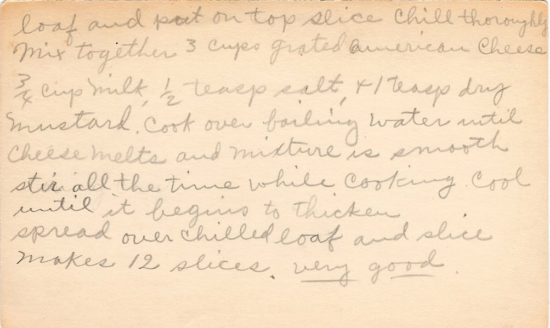 loaf and put on top slice chill thoroughly
Mix together 3 cups grated american Cheese
3/4 cup milk, 1/2 teasp salt, + 1 teasp dry
Mustard. Cook over boiling water until
Cheese melts and mixture is smooth
stir all the time while cooking. Cool
until it begins to thicken
spread over chilled loaf and slice
makes 12 slices. very good.